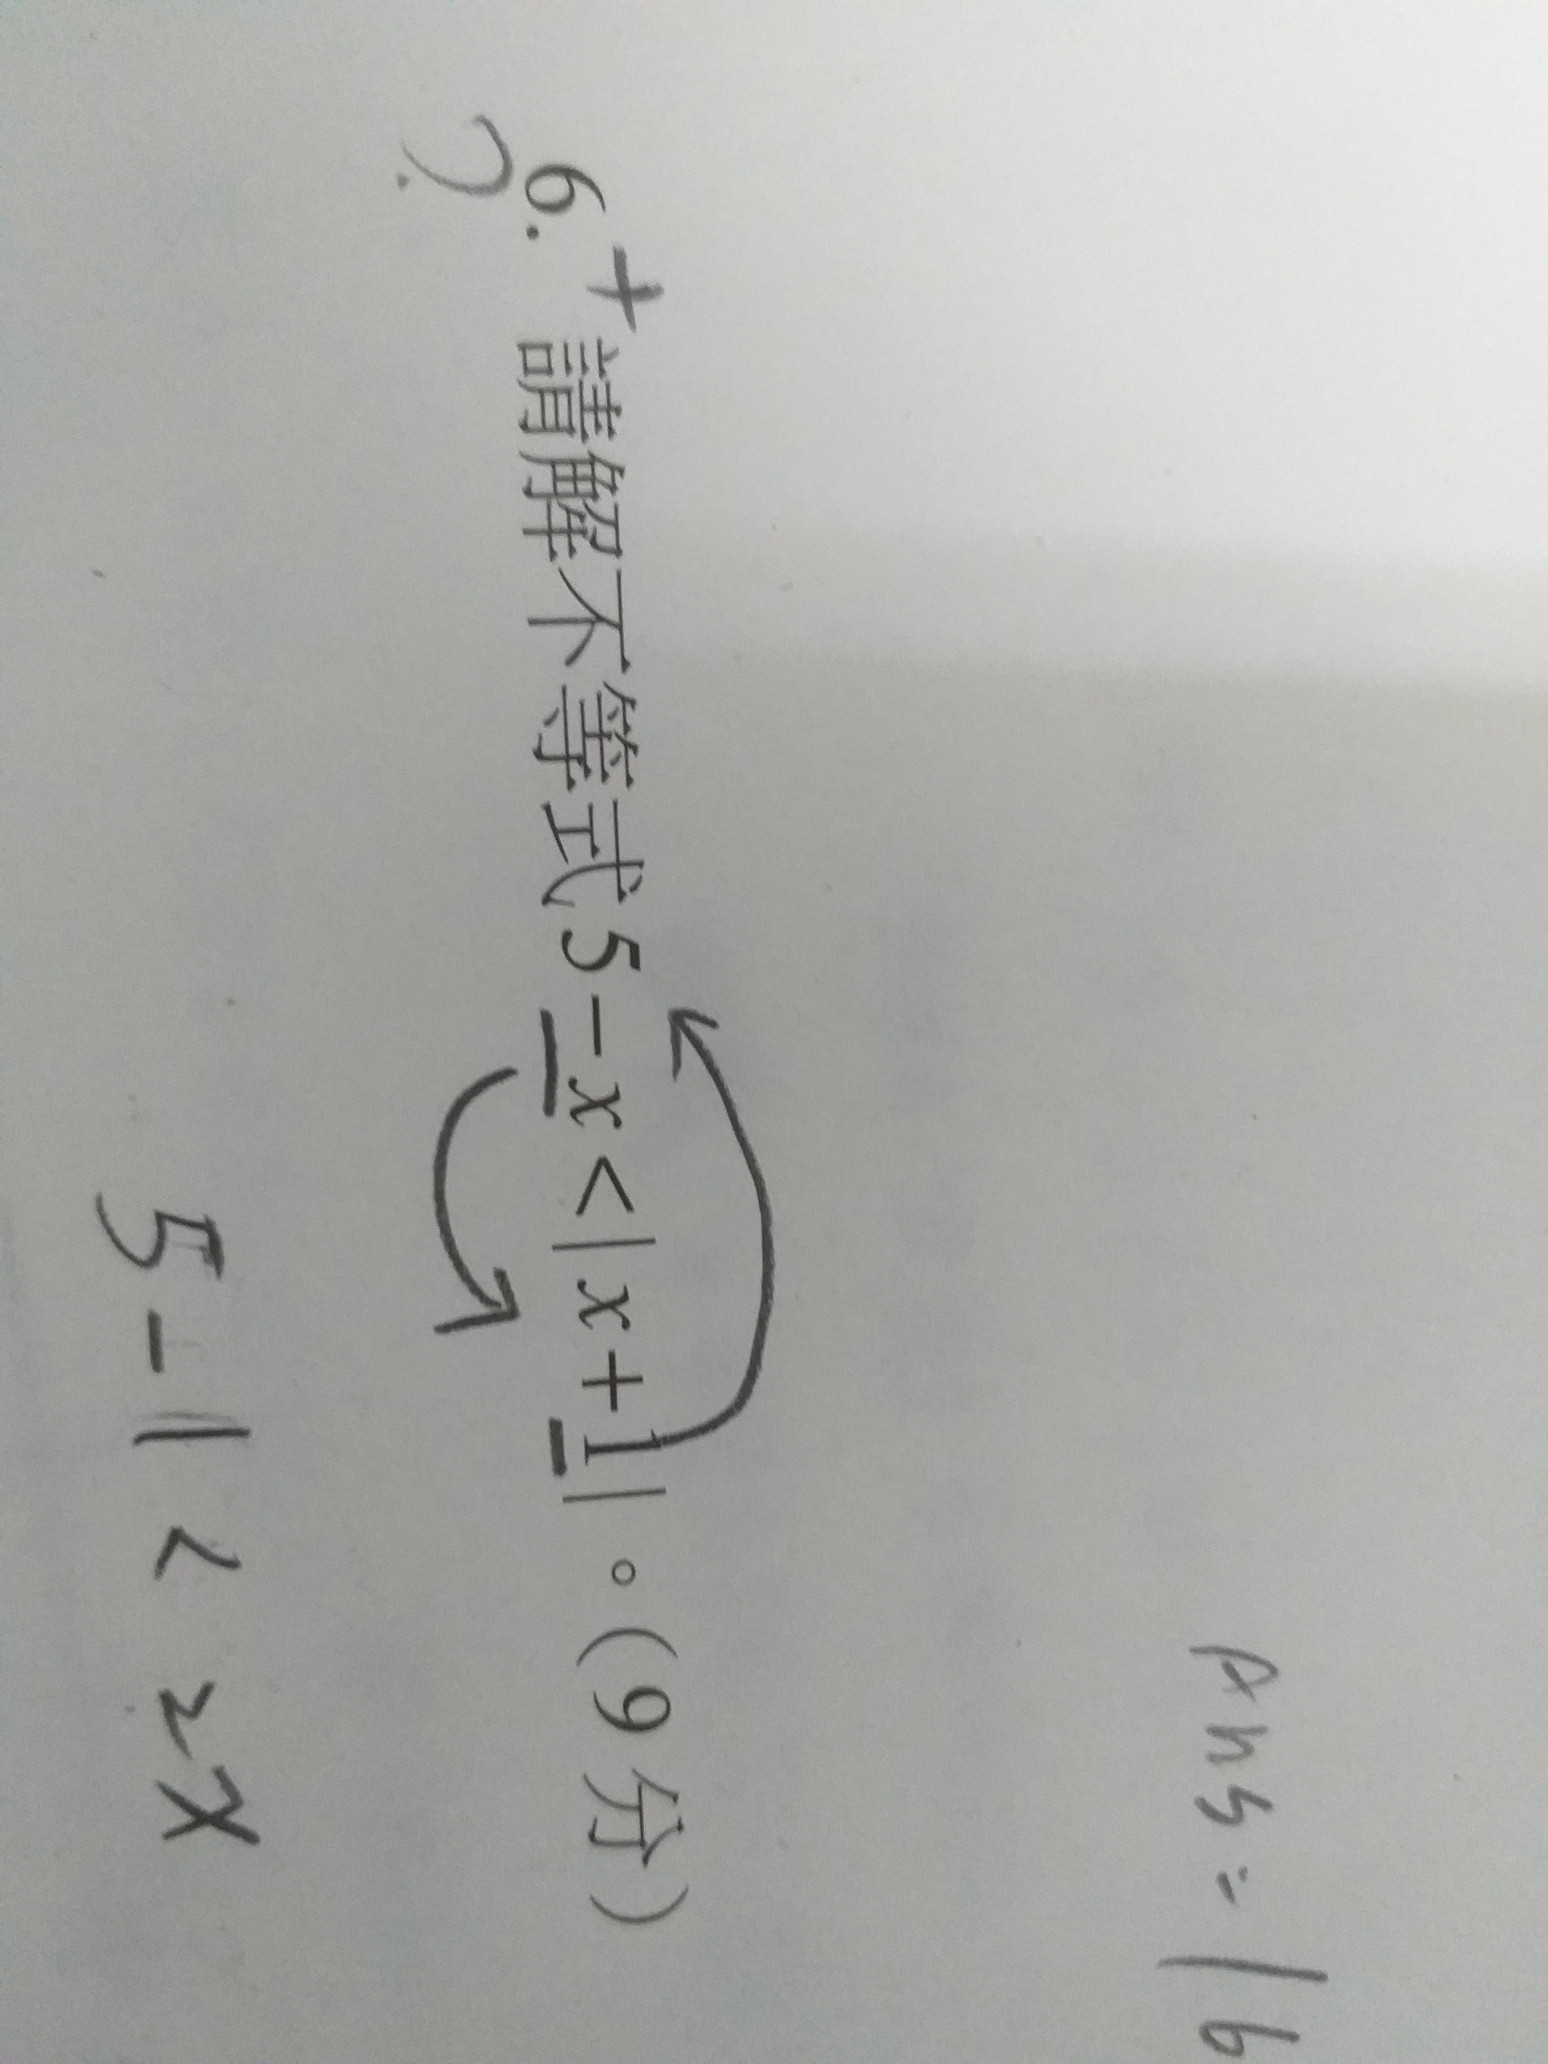 Ans = 16
6. 請解不等式 5 − x < | x + 1 |。(9分)
?
5 - 1 < 2x